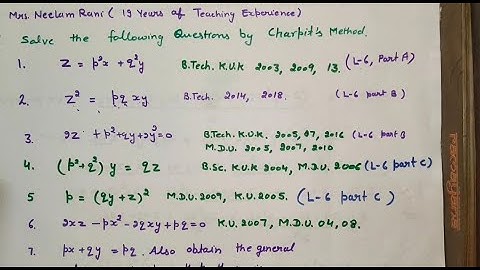 Mrs. Neelam Rani ( 19 Years of Teaching Experience)
Solve the following Questions by Charpit's Method.
1. z = p²x + q²y B.Tech. K.U.K 2003, 2009, 13. (L-6, Part A)
2. z² = pq xy B.Tech. 2014, 2018. (L-6 part B)
3. 2z + p²+qy+2y²=0 B.Tech. K.U.K. 2005, 07, 2016 (L-6 part B
M.D.U. 2005, 2007, 2010
4. (p²+q²) y = qz B.Sc. K.U.K 2004, M.D.U. 2006 (L-6 part C)
5 p = (qy+z)² M.D.U. 2009, K.U.K 2005. (L-6 part C)
6. 2xz - px² - 2qxy + pq = 0 K.U. 2007, M.D.U. 04, 08.
7. px + qy = pq. Also obtain the general